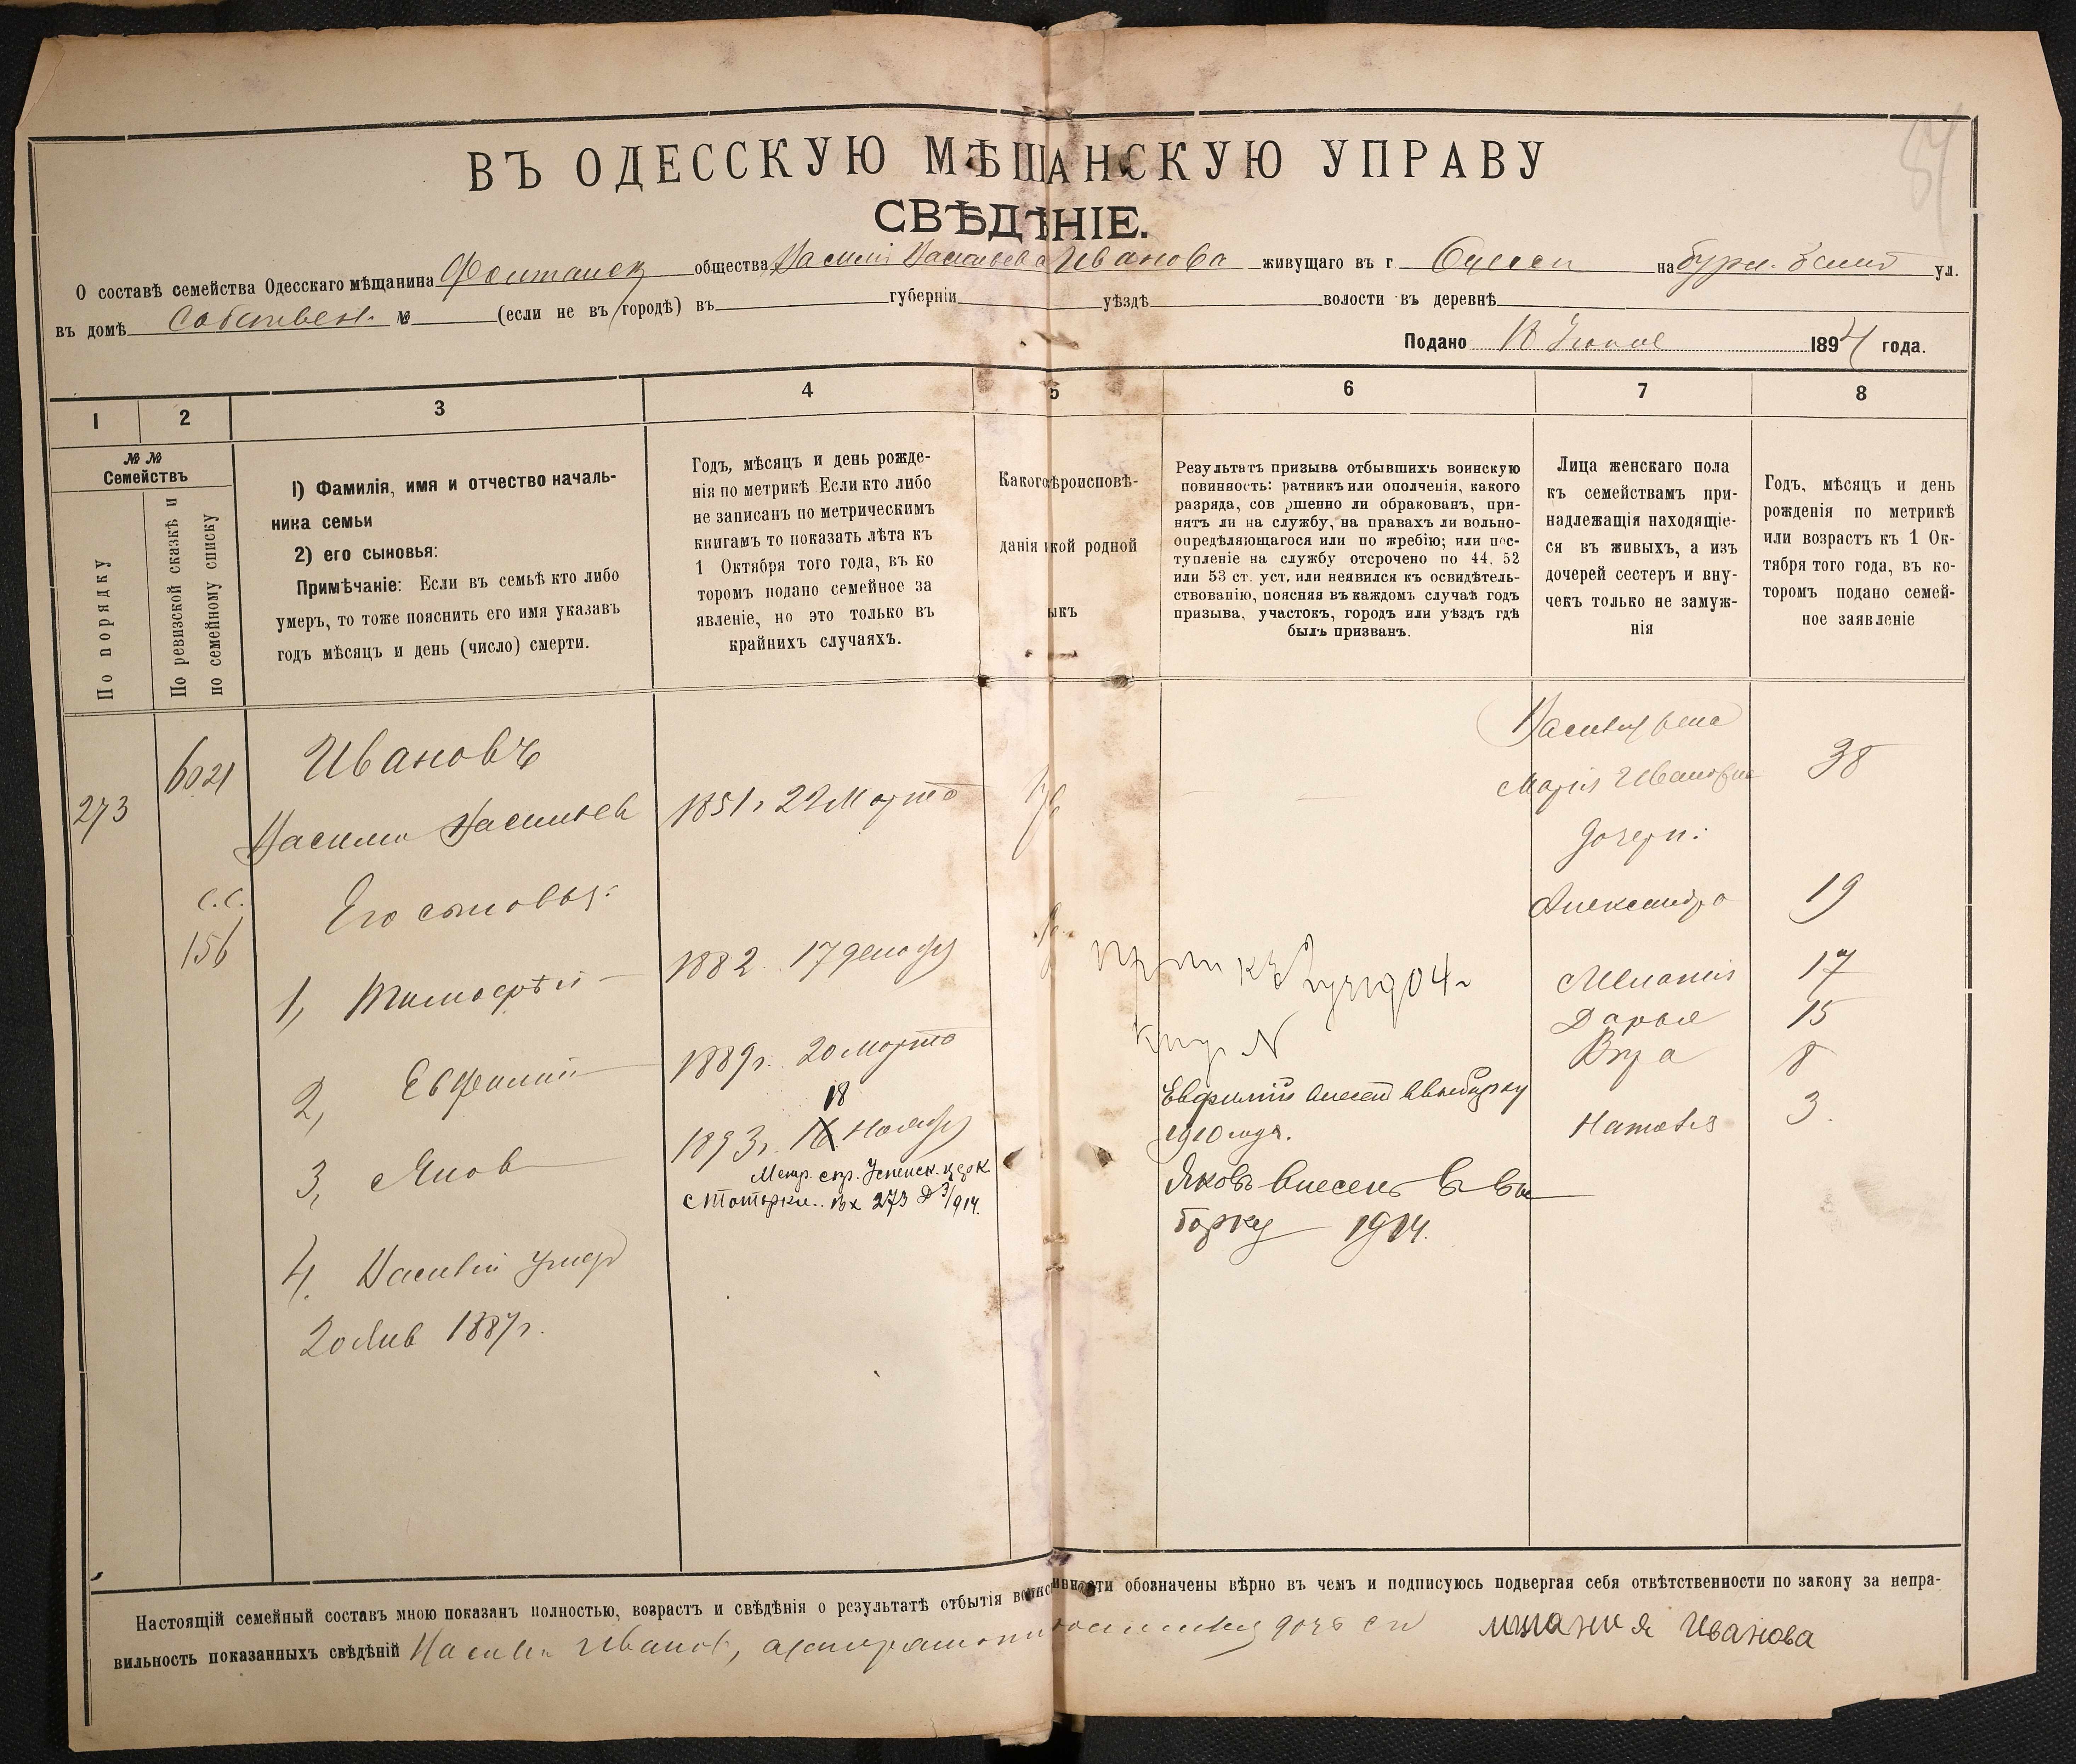 84
ВЪ ОДЕССКУЮ МѢЩАНСКУЮ УПРАВУ
СВѢДѢНІЕ.
О составѣ семейства Одесскаго мѣщанина Фонтанск общества Василія Васильева Иванова живущаго въ г. Одессѣ на ул.
въ домѣ Собствен. № (если не въ городѣ) въ губерніи уѣздѣ волости въ деревнѣ
Подано 18 1894 года.
1 2 3 4 5 6 7 8
№ №
Семействъ
По порядку
По ревизской сказкѣ и
по семейному списку
1) Фамилія, имя и отчество началь-
ника семьи
2) его сыновья:
Примѣчаніе: Если въ семьѣ кто либо
умеръ, то тоже пояснить его имя указавъ
годъ мѣсяцъ и день (число) смерти.
Годъ, мѣсяцъ и день рожде-
нія по метрикѣ Если кто либо
не записанъ по метрическимъ
книгамъ то показать лѣта къ
1 Октября того года, въ ко
торомъ подано семейное за
явленіе, но это только въ
крайнихъ случаяхъ.
Какого вѣроисповѣ-
данія и кой родной
ыкъ
Результатъ призыва отбывшихъ воинскую
повинность: ратникъ или ополченія, какого
разряда, сов ршенно ли обракованъ, при-
нятъ ли на службу, на правахъ ли вольно-
опредѣляющагося или по жребію; или пос-
тупленіе на службу отсрочено по 44. 52
или 53 ст. уст. или неявился къ освидѣтель-
ствованію, поясняя въ каждомъ случаѣ годъ
призыва, участокъ, городъ или уѣздъ гдѣ
былъ призванъ.
Лица женскаго пола
къ семействамъ при-
надлежащія находящіе-
ся въ живыхъ, а изъ
дочерей сестеръ и вну-
чекъ только не замуж-
нія
Годъ, мѣсяцъ и день
рожденія по метрикѣ
или возрастъ къ 1 Ок-
тября того года, въ ко-
торомъ подано семей-
ное заявленіе
273
6021
Ивановъ
Василій Васильев
1851 г. 22 Марта
Василія жена
Марія Ивановна 38
дочери:
с.с.
156
Его сыновья:
Александра 19
1, Тимофѣй 1882. 17 декабря
1904 г.
Меланія 17
Дарья 15
2, Евфимій 1889 г. 20 марта
Вѣра 8
Евфимій внесен в выборку
1910 года.
3, Яков 1893 г. 16 18 Ноября
Наталья 3.
Метр. спр. Успенск. церк.
с Татарки.. Вх 273 3/914.
Яковъ внесенъ въ вы
борку 1914.
4. Василій умер
20 Янв 1887 г.
Настоящій семейный составъ мною показанъ полностью, возрастъ и свѣдѣнія о результатѣ отбытія воинской повинности обозначены вѣрно въ чемъ и подписуюсь подвергая себя отвѣтственности по закону за непра-
вильность показанныхъ свѣдѣній Василій Иванов, дочь ея Мнлания Иванова